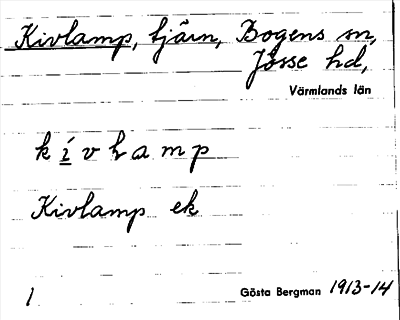 Kivlamp, tjärn, Bogens sn,
Jösse hd,
Värmlands län
k í v l a m p
Kivlamp ek
1 Gösta Bergman 1913-14